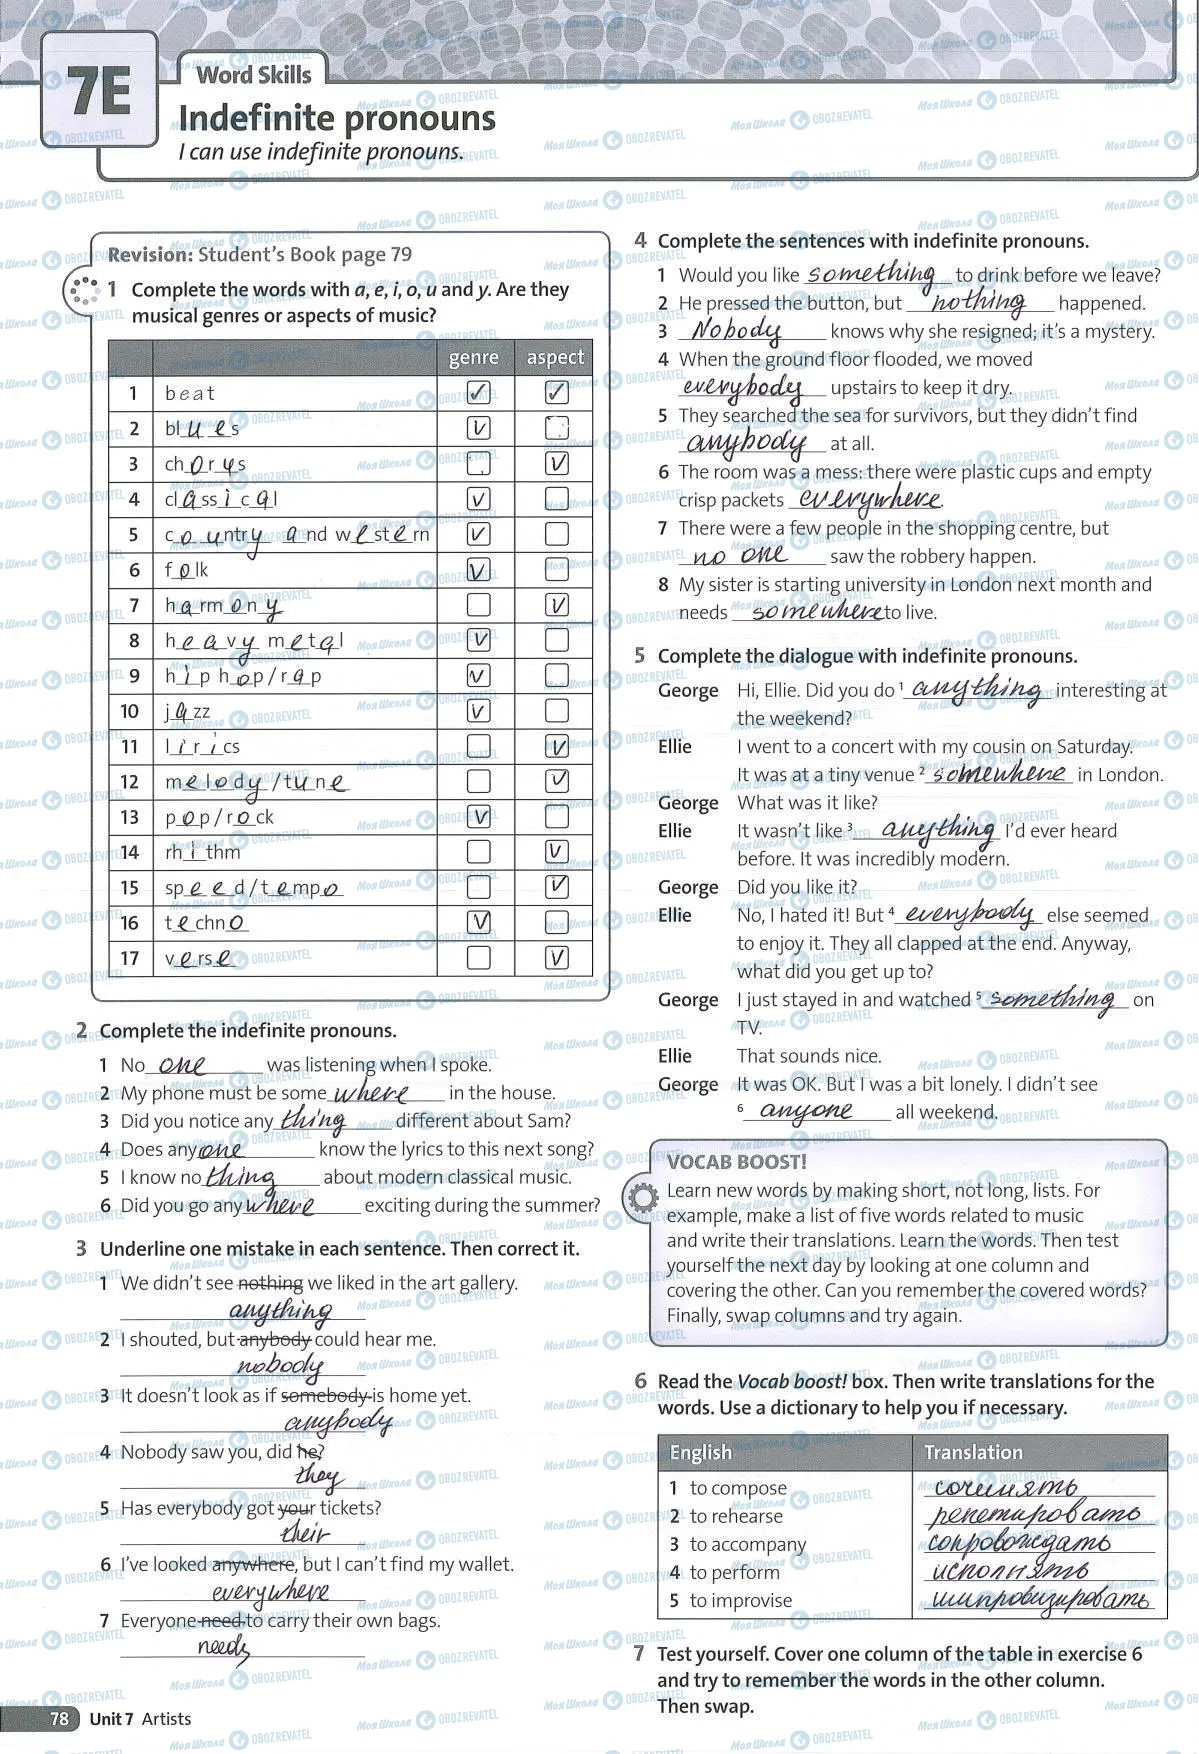 7E
Word Skills
Indefinite pronouns
I can use indefinite pronouns.
Revision: Student's Book page 79
1 Complete the words with a, e, i, o, u and y. Are they
musical genres or aspects of music?
genre aspect
1 beat ✓ ✓
2 blues V
3 chorys V
4 classical V
5 country and western V
6 folk V
7 harmony V
8 heavy metal V
9 hip hop / rap V
10 jazz V
11 lirics V
12 melody / tune V
13 pop / rock V
14 rhithm V
15 speed / tempo V
16 techno V
17 verse V
2 Complete the indefinite pronouns.
1 No one was listening when I spoke.
2 My phone must be some where in the house.
3 Did you notice any thing different about Sam?
4 Does any one know the lyrics to this next song?
5 I know no thing about modern classical music.
6 Did you go any where exciting during the summer?
3 Underline one mistake in each sentence. Then correct it.
1 We didn't see nothing we liked in the art gallery.
anything
2 I shouted, but anybody could hear me.
nobody
3 It doesn't look as if somebody is home yet.
anybody
4 Nobody saw you, did he?
they
5 Has everybody got your tickets?
their
6 I've looked anywhere, but I can't find my wallet.
everywhere
7 Everyone need to carry their own bags.
needs
78 Unit 7 Artists
4 Complete the sentences with indefinite pronouns.
1 Would you like something to drink before we leave?
2 He pressed the button, but nothing happened.
3 Nobody knows why she resigned; it's a mystery.
4 When the ground floor flooded, we moved
everybody upstairs to keep it dry.
5 They searched the sea for survivors, but they didn't find
anybody at all.
6 The room was a mess: there were plastic cups and empty
crisp packets everywhere.
7 There were a few people in the shopping centre, but
no one saw the robbery happen.
8 My sister is starting university in London next month and
needs somewhere to live.
5 Complete the dialogue with indefinite pronouns.
George Hi, Ellie. Did you do 1 anything interesting at
the weekend?
Ellie I went to a concert with my cousin on Saturday.
It was at a tiny venue 2 somewhere in London.
George What was it like?
Ellie It wasn't like 3 anything I'd ever heard
before. It was incredibly modern.
George Did you like it?
Ellie No, I hated it! But 4 everybody else seemed
to enjoy it. They all clapped at the end. Anyway,
what did you get up to?
George I just stayed in and watched 5 something on
TV.
Ellie That sounds nice.
George It was OK. But I was a bit lonely. I didn't see
6 anyone all weekend.
VOCAB BOOST!
Learn new words by making short, not long, lists. For
example, make a list of five words related to music
and write their translations. Learn the words. Then test
yourself the next day by looking at one column and
covering the other. Can you remember the covered words?
Finally, swap columns and try again.
6 Read the Vocab boost! box. Then write translations for the
words. Use a dictionary to help you if necessary.
English Translation
1 to compose сочинять
2 to rehearse репетировать
3 to accompany сопровождать
4 to perform исполнять
5 to improvise импровизировать
7 Test yourself. Cover one column of the table in exercise 6
and try to remember the words in the other column.
Then swap.